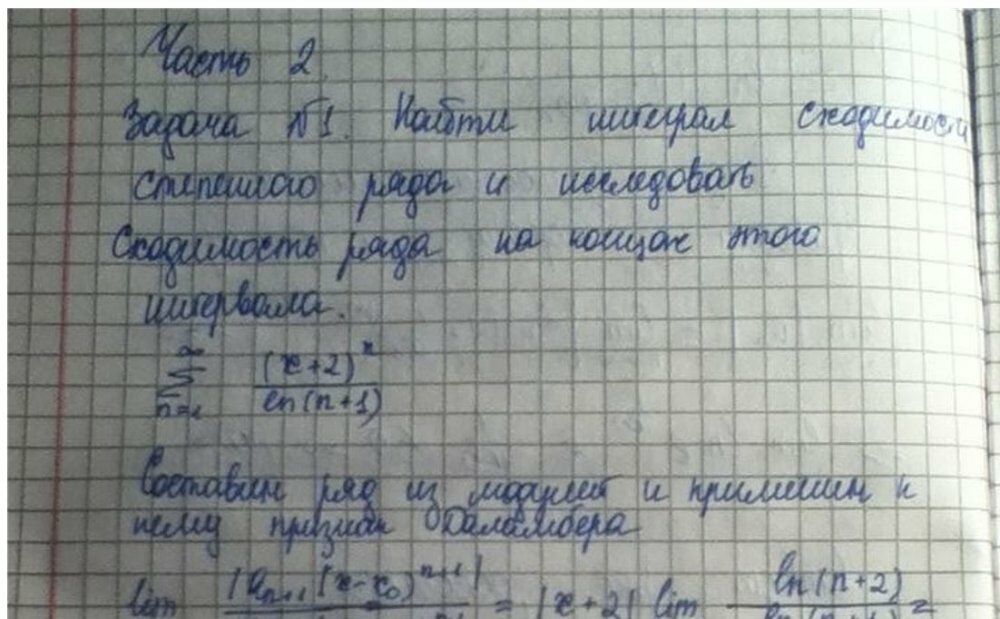 Часть 2.
Задача №1. Найти интеграл сходимости
степенного ряда и исследовать
сходимость ряда на концах этого
интервала.
∞
Σ (x+2)^n
n=1 ln(n+1)
Составим ряд из модулей и применим к
нему признак Даламбера
lim |a_{n+1}(x-x_0)^{n+1}| = |x+2| lim ln(n+2) =